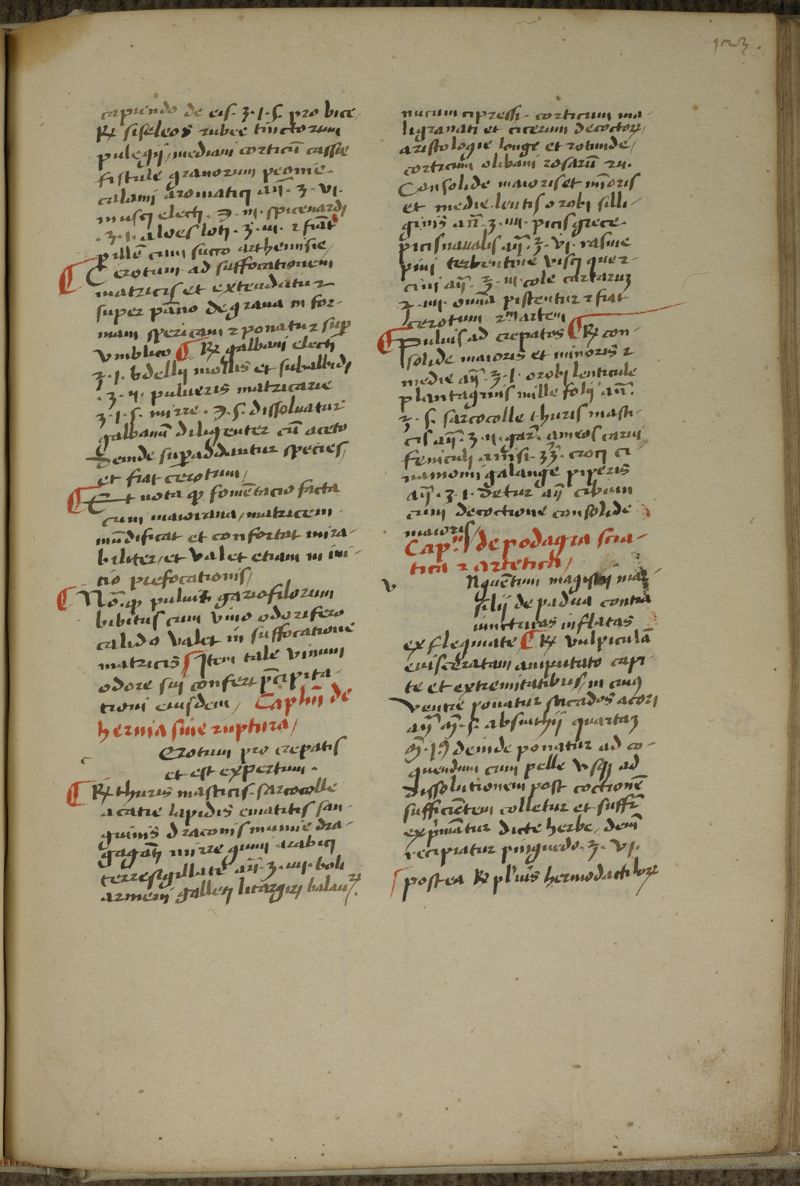 123.
capiendo de eis. ʒ. i. s. pro vice/
℞ siseleos rubee tinctorum
pulegij/ mediani corticū cassie
fistule granorum peonie.
calami aromatici añ. ʒ. vi.
musci electi. ℈. iii. spicenardi
.ʒ. i. aloes loti. ʒ. iii. ⁊ fiāt
pille cum succo arthemisie/
Cerotum ad suffocationem
matricis et extendatur
super pāno de grana in for-
mam spericam ⁊ ponatur sup
vmblico ℞ galbani electi
ʒ. i. bdellij mollis et subalbidi
.ʒ. ii. pulueris matricarie
ʒ. i. s. mirre. ℈. s. dissoluatur
galbanū diligenter cū aceto
Deinde superaddantur species/
et fiat cerotum/
Et nota ꝙ fomētacio facta
cum maiorana/ matricem
mūdificat et confortat mira-
biliter/ et valet etiam in ini-
tio prefocationis/
Nō. ꝙ puluis gariofilorum
bibitus cum vino odorifero
calido valet in suffocatione
matricis Item tale vinum
odore sui confert p̄cipita-
tioni eiusdem/ Caplm̄ de
hernia siue ruptura/
c Erotum pro crepatis
et est expertum.
℞ thuris masticis. sarcocolle
acatie lapidis ematitis san-
guinis draconis mumie dra-
gaganti mirre gumi arabici
terresigillate añ. ʒ. iii. boli
armeni galleti litargiri balau
nucum cipressi. corticum ma-
ligranati et citerum decoctor/
aristologie longe et rotunde/
corticum olibani rosarū ru.
Consolide maioris et mīoris
et medie. lentis orobi silli-
ginis añ. ʒ. iiii. picis grece.
picis naualis añ. ʒ. vi. rasine
pini terbentine visci quer-
cini añ. ʒ. iii cole cartarum
ʒ. iiii. omnia pistentur ⁊ fiat
cerotum s̄m artem
Puluis ad crepatos ℞ con-
solide maioris et minoris ⁊
medie añ. ʒ. i. orobi lenticule
plantaginis mille folij añ.
ʒ. s. sarcocolle thuris masti-
cis añ. ʒ. ii. gar. ameos carui
feniculi anisi. ʒʒ. croci ci-
namomi galange piperis
añ. ʒ. i. detur añ cibum
cum decoctione consolide
maioris/
Capm̄ de podagra scia-
tica ⁊ artetica/
v Nguētum magistri mar
silij de padua contra
iuncturas inflatas
ex flegmate ℞ vulpiculā
euisceratam amputato capi-
te et extremitatibus/ in cuius
ventre ponatur sticados acori
añ m̄. s. absinthij quartam
m̄. i deinde ponatur ad co-
quendum cum pelle vsq ad
dissolutionem post coctionē
sufficientem colletur et suffr̄
exp̄mātur dicte herbe/ dem̄
recipiatur pinguedo. ʒ. vi.
postea ℞ pluis hermodactilor